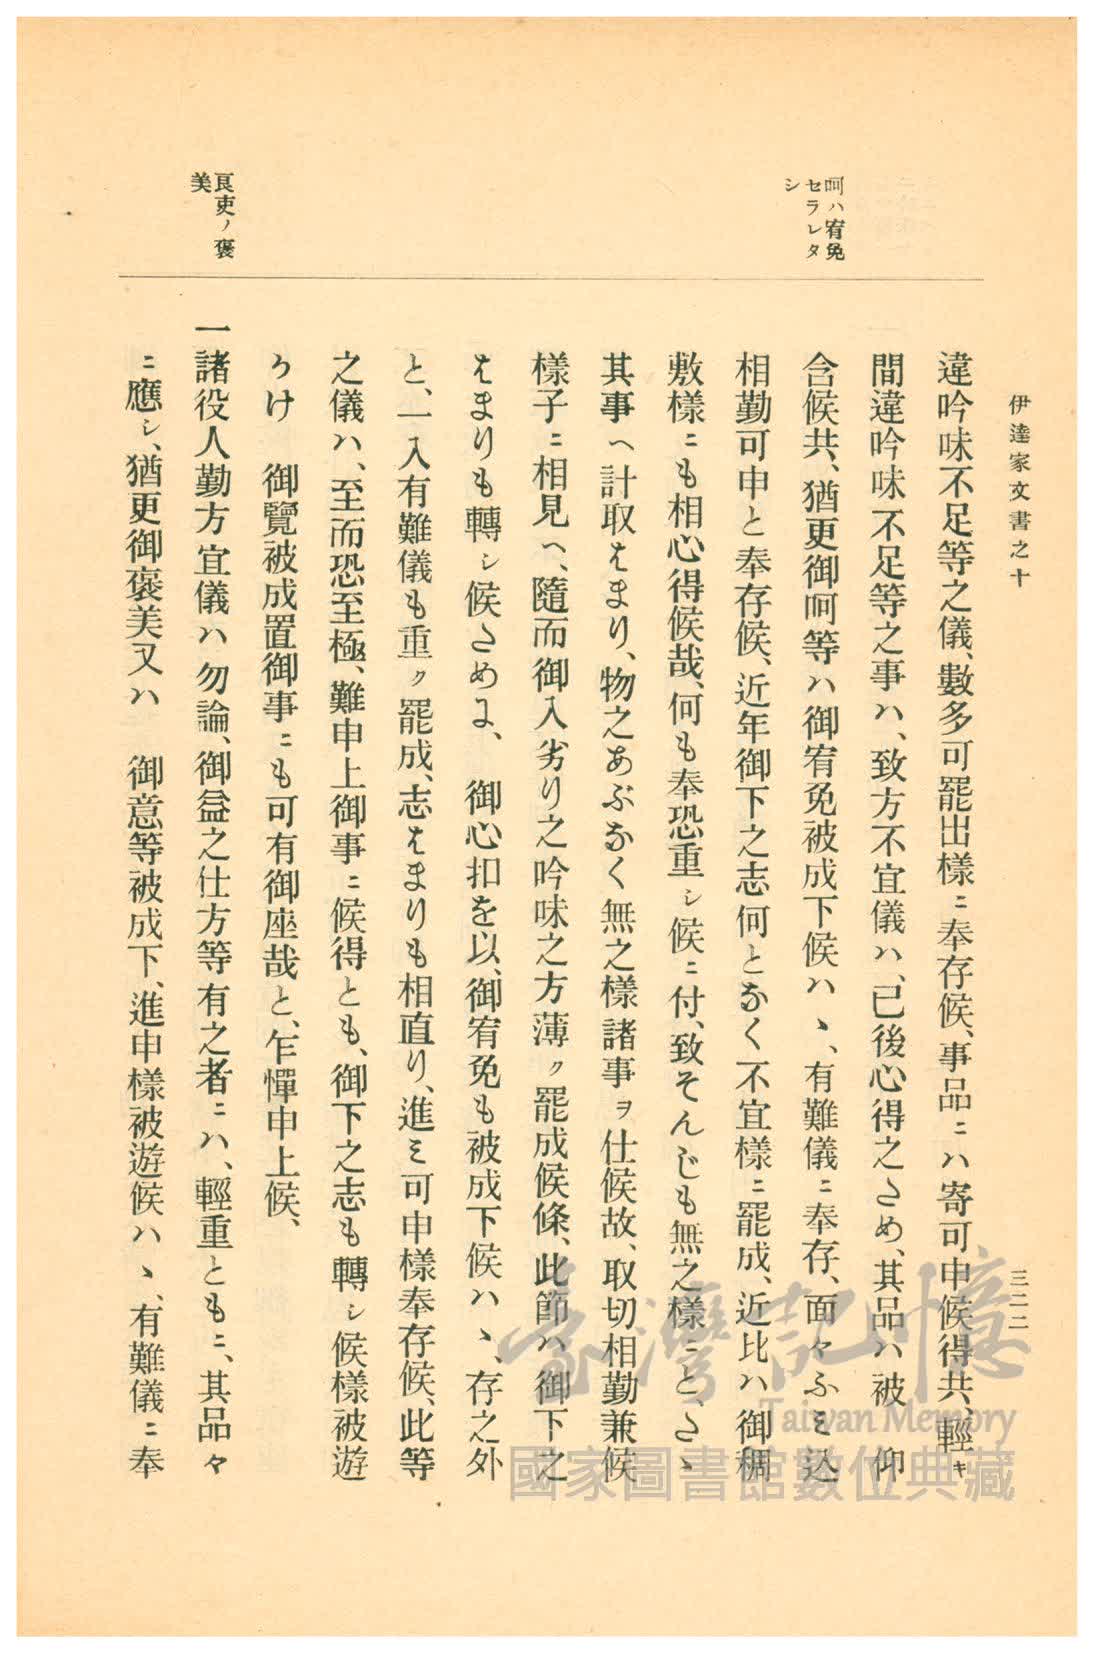 伊達家文書之十
三二二
呵ハ宥免
セラレタ
シ
良吏ノ褒
美
違吟味不足等之儀、數多可罷出樣ニ奉存候、事品ニハ寄可申候得共、輕キ
間違吟味不足等之事ハ、致方不宜儀ハ、已後心得之ため、其品ハ被　仰
含候共、猶更御呵等ハ御宥免被成下候ハヽ、有難儀ニ奉存、面々ふミ込
相勤可申と奉存候、近年御下之志何となく不宜樣ニ罷成、近比ハ御稠
敷樣ニも相心得候哉、何も奉恐重シ候ニ付、致そんしも無之樣ニと、たゝ
其事へ計取はまり、物之あぶなく無之樣諸事ヲ仕候故、取切相勤兼候
樣子ニ相見へ、隨而御入劣り之吟味之方薄ク罷成候條、此節ハ御下之
はまりも轉シ候ために、　御心扣を以、御宥免も被成下候ハヽ、存之外
と、一入有難儀も重ク罷成、志はまりも相直り、進ミ可申樣奉存候、此等
之儀ハ、至而恐至極、難申上御事ニ候得とも、御下之志も轉シ候樣被遊
かけ　御覽被成置御事ニも可有御座哉と、乍憚申上候、
一諸役人勤方宜儀ハ勿論、御益之仕方等有之者ニハ、輕重ともニ、其品々
ニ應シ、猶更御褒美又ハ　御意等被成下、進申樣被遊候ハヽ、有難儀ニ奉
臺灣記憶
Taiwan Memory
國家圖書館數位典藏